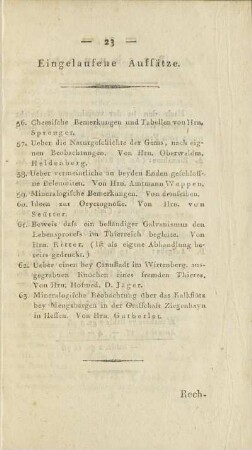 — 23 —
Eingelaufene Aufsätze.
56. Chemische Bemerkungen und Tabellen von Hrn.
Sprenger.
57. Ueber die Naturgeschichte der Gems, nach eig-
nen Beobachtungen. Von Hrn. Oberwaldm.
Heldenberg.
58. Ueber vermeintliche an beyden Enden geschlosse-
ne Belemniten. Von Hrn. Amtmann Weppen.
59. Mineralogische Bemerkungen. Von demselben.
60. Ideen zur Oryctognosie. Von Hrn. von
Seutter.
61. Beweis dass ein beständiger Galvanismus den
Lebensprocess im Thierreich begleite. Von
Hrn. Ritter. (Ist als eigene Abhandlung be-
reits gedruckt.)
62. Ueber einen bey Cannstadt im Wirtenberg. aus-
gegrabnen Knochen eines fremden Thieres.
Von Hrn. Hofmed. D. Jäger.
63. Mineralogische Beobachtung über das Kalkflötz
bey Mengsbergen in der Grafschaft Ziegenhayn
in Hessen. Von Hrn. Gutberlet.
Rech-